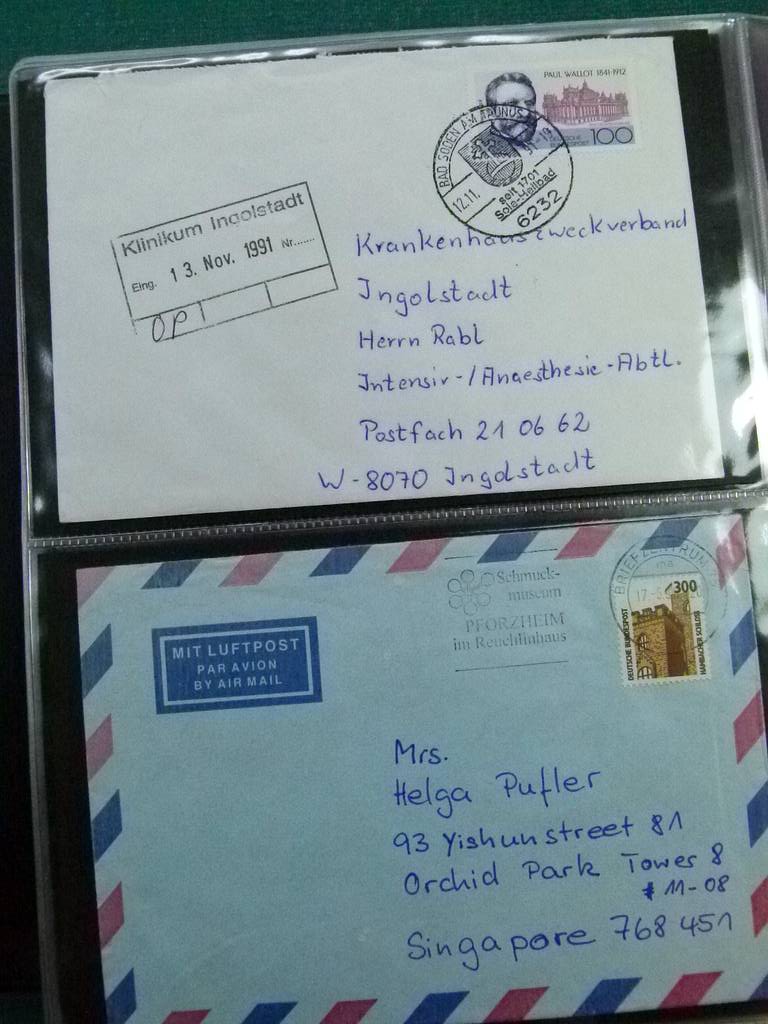 PAUL WALLOT 1841-1912
DEUTSCHE
BUNDESPOST
100
BAD SODEN AM TAUNUS
12.11.
seit 1701
Sole-Heilbad
6232
Klinikum Ingolstadt
Eing. 13. Nov. 1991 Nr.......
OP
Krankenhauszweckverband
Ingolstadt
Herrn Rabl
Intensiv-/Anaesthesie-Abtl.
Postfach 21 06 62
W-8070 Ingolstadt
Schmuck-
museum
PFORZHEIM
im Reuchlinhaus
BRIEFZENTRUM
300
DEUTSCHE BUNDESPOST
HAMBACHER SCHLOSS
MIT LUFTPOST
PAR AVION
BY AIR MAIL
Mrs.
Helga Pufler
93 Yishunstreet 81
Orchid Park Tower 8
# 11-08
Singapore 768 451